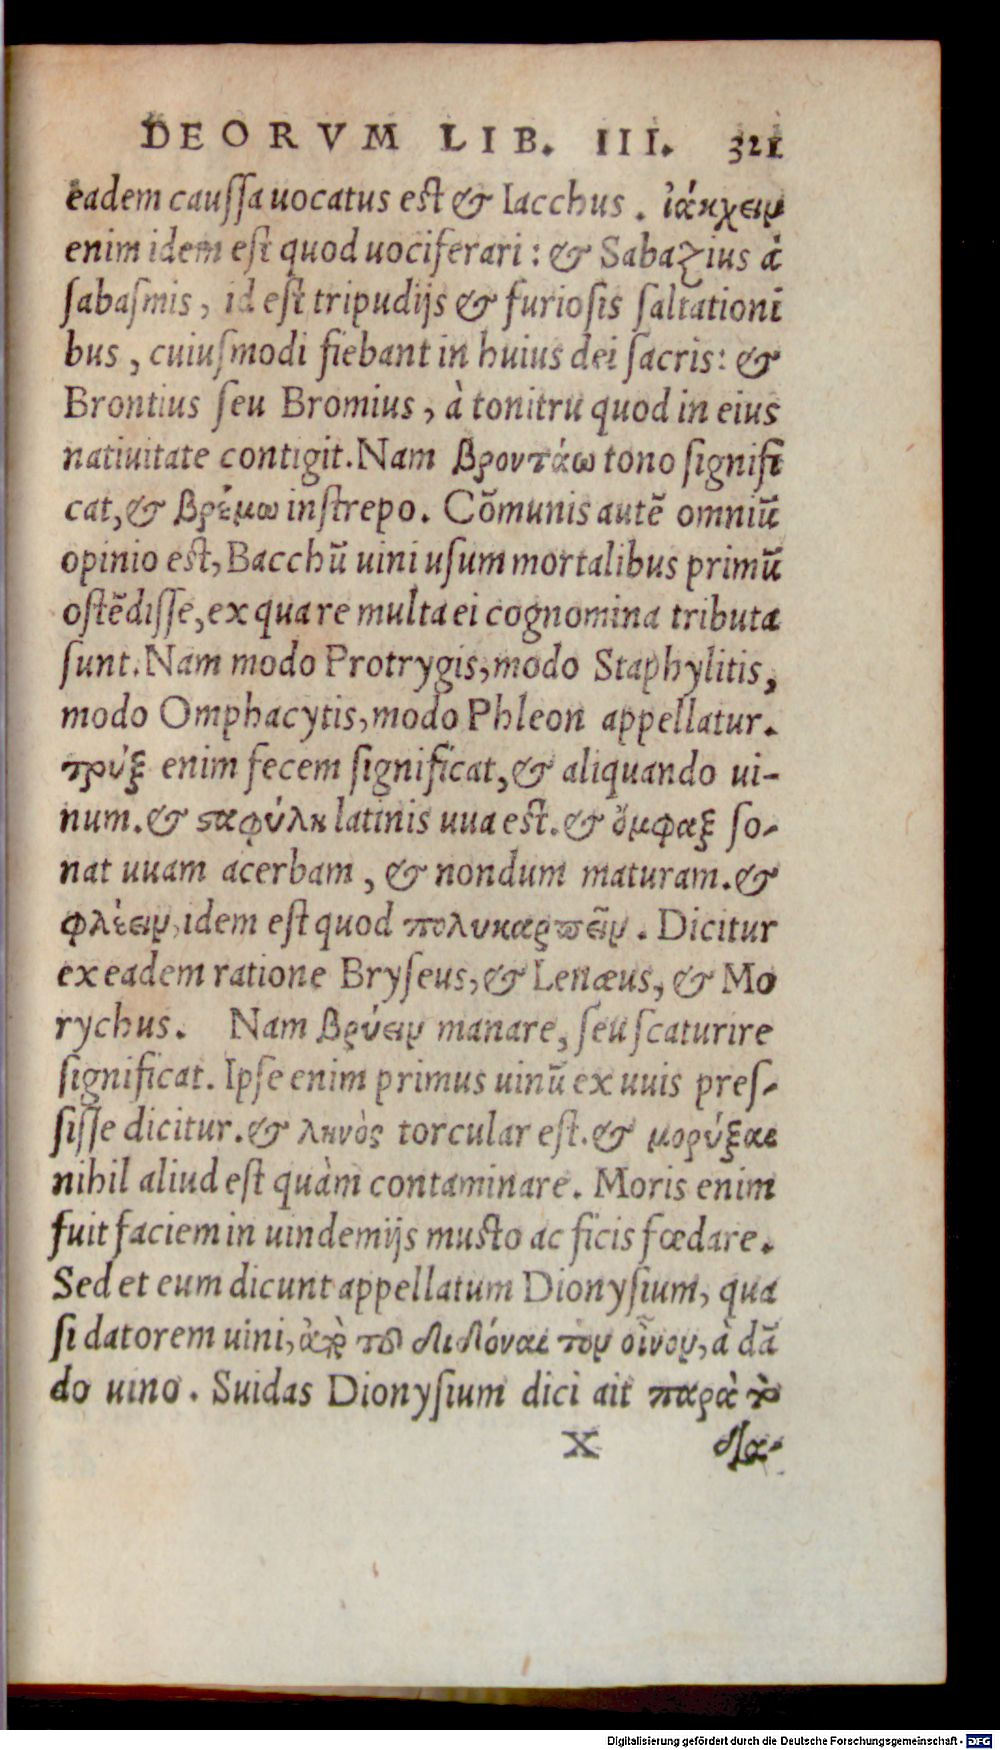 DEORVM LIB. III. 321
eadem caussa uocatus est & Iacchus. ἰάκχειν
enim idem est quod uociferari: & Sabazius à
sabasmis, id est tripudijs & furiosis saltationi
bus, cuiusmodi fiebant in huius dei sacris: &
Brontius seu Bromius, à tonitru quod in eius
natiuitate contigit. Nam βροντάω tono signifi
cat, & βρέμω instrepo. Cōmunis autē omniū
opinio est, Bacchū uini usum mortalibus primū
ostēdisse, ex qua re multa ei cognomina tributa
sunt. Nam modo Protrygis, modo Staphylitis,
modo Omphacytis, modo Phleon appellatur.
τρύξ enim fecem significat, & aliquando ui-
num. & ϛαφύλη latinis uua est. & ὄμφαξ so-
nat uuam acerbam, & nondum maturam. &
φλέειν, idem est quod πολυκαρπεῖν. Dicitur
ex eadem ratione Bryseus, & Lenæus, & Mo
rychus. Nam βρύειν manare, seu scaturire
significat. Ipse enim primus uinū ex uuis pres-
sisse dicitur. & ληνὸς torcular est. & μορύξαι
nihil aliud est quàm contaminare. Moris enim
fuit faciem in uindemijs musto ac ficis fœdare.
Sed et eum dicunt appellatum Dionysium, qua
si datorem uini, ἀπὸ τοῦ διδόναι τὸν οἶνον, à dā
do uino. Suidas Dionysium dici ait παρὰ τὸ
X δια-
Digitalisierung gefördert durch die Deutsche Forschungsgemeinschaft - DFG